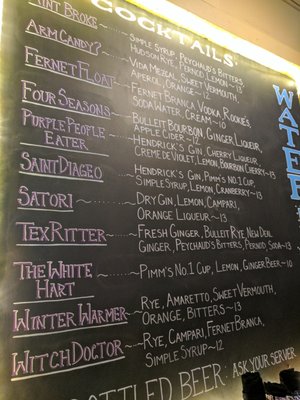 COCKTAILS
MINT BROKE~ SIMPLE SYRUP, PEYCHAUD'S BITTERS
HUDSON RYE, FERNOD, LEMON~13
ARM CANDY?~ VIDA MEZCAL, SWEET VERMOUTH,
APEROL, ORANGE~12
FERNET FLOAT~ FERNET BRANCA, VODKA, ROOKIE'S
SODA WATER, CREAM~10
FOUR SEASONS~ BULLEIT BOURBON, GINGER LIQUEUR,
APPLE CIDER~12
PURPLE PEOPLE
EATER~ HENDRICK'S GIN, CHERRY LIQUEUR,
CREME DE VIOLET, LEMON, BOURBON CHERRY~13
SAINT DIAGEO~ HENDRICK'S GIN, PIMM'S NO. 1 CUP,
SIMPLE SYRUP, LEMON, CRANBERRY~13
SATORI~ DRY GIN, LEMON, CAMPARI,
ORANGE LIQUEUR~13
TEX RITTER~ FRESH GINGER, BULLEIT RYE, NEW DEAL
GINGER, PEYCHAUD'S BITTERS, PERNOD, SODA~13
THE WHITE
HART~ PIMM'S NO. 1 CUP, LEMON, GINGER BEER~10
WINTER WARMER~ RYE, AMARETTO, SWEET VERMOUTH,
ORANGE, BITTERS~13
WITCH DOCTOR~ RYE, CAMPARI, FERNET BRANCA,
SIMPLE SYRUP~12
BOTTLED BEER: ASK YOUR SERVER